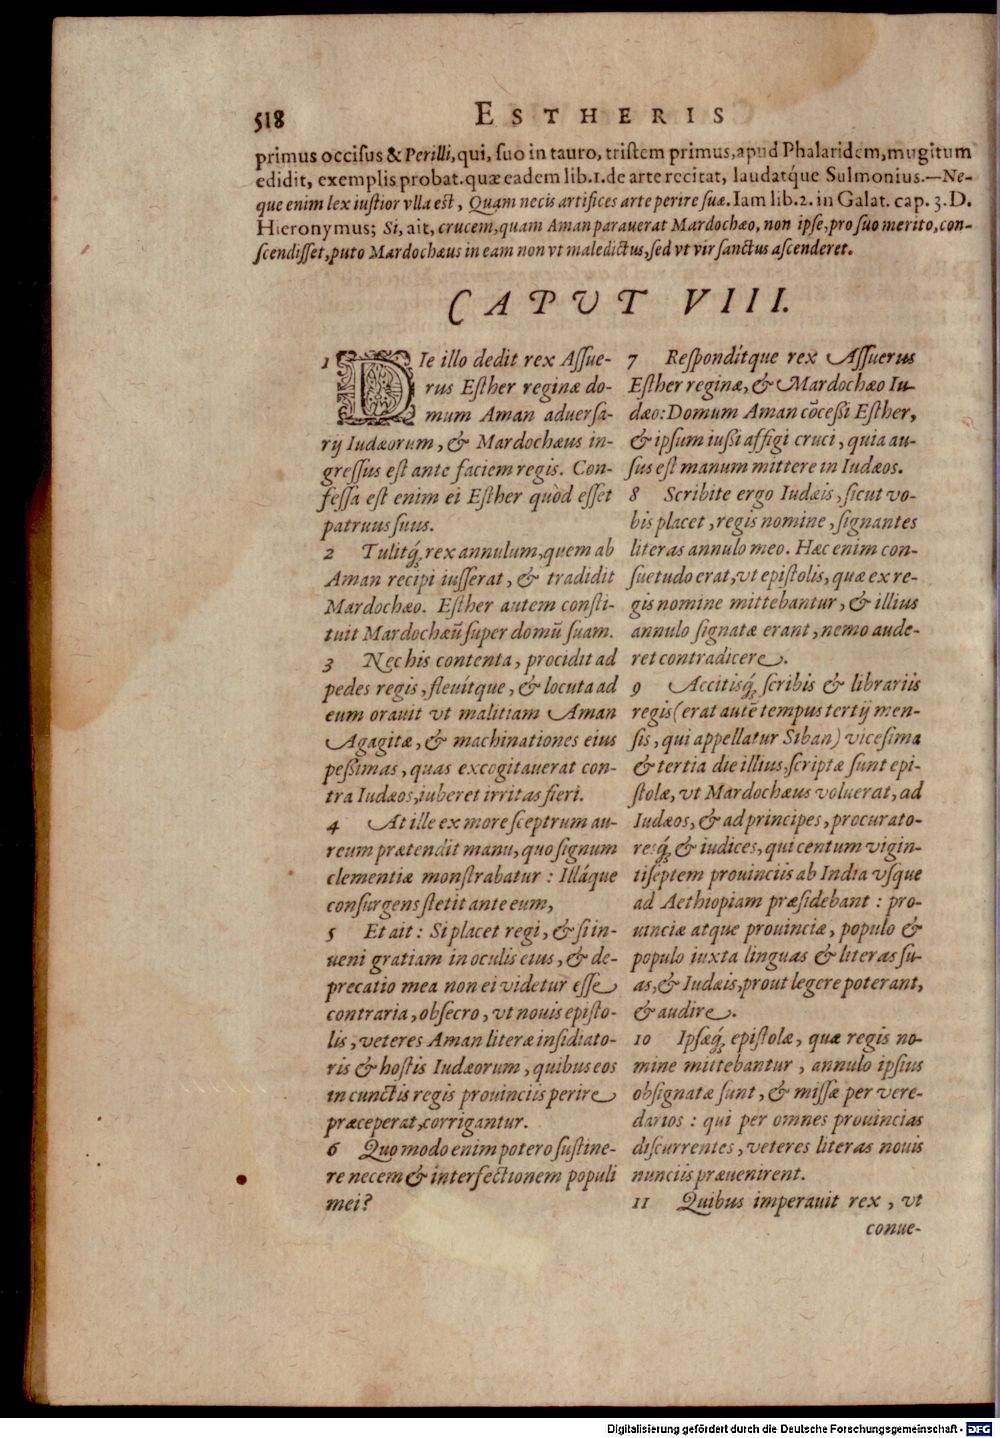 518
ESTHERIS
primus occisus & Perilli, qui, suo in tauro, tristem primus, apud Phalaridem, mugitum
edidit, exemplis probat. quæ eadem lib. 1. de arte recitat, laudatq́ue Sulmonius.—Ne-
que enim lex iustior vlla est, Quam necis artifices arte perire suæ. Iam lib. 2. in Galat. cap. 3. D.
Hieronymus; Si, ait, crucem, quam Aman parauerat Mardochæo, non ipse, pro suo merito, con-
scendisset, puto Mardochæus in eam non vt maledictus, sed vt vir sanctus ascenderet.
CAPUT VIII.
1 DIe illo dedit rex Assue-
rus Esther reginæ do-
mum Aman aduersa-
rij Iudæorum, & Mardochæus in-
gressus est ante faciem regis. Con-
fessa est enim ei Esther quòd esset
patruus suus.
2 Tulitq́; rex annulum, quem ab
Aman recipi iusserat, & tradidit
Mardochæo. Esther autem consti-
tuit Mardochæũ super domũ suam.
3 Nec his contenta, procidit ad
pedes regis, fleuítque, & locuta ad
eum orauit vt malitiam Aman
Agagitæ, & machinationes eius
peßimas, quas excogitauerat con-
tra Iudæos, iuberet irritas fieri.
4 At ille ex more sceptrum au-
reum prætendit manu, quo signum
clementiæ monstrabatur: Illáque
consurgens stetit ante eum,
5 Et ait: Si placet regi, & si in-
ueni gratiam in oculis eius, & de-
precatio mea non ei videtur esse
contraria, obsecro, vt nouis episto-
lis, veteres Aman literæ insidiato-
ris & hostis Iudæorum, quibus eos
in cunctis regis prouinciis perire
præceperat, corrigantur.
6 Quomodo enim potero sustine-
re necem & interfectionem populi
mei?
7 Respondítque rex Assuerus
Esther reginæ, & Mardochæo Iu-
dæo: Domum Aman cõceßi Esther,
& ipsum iußi affigi cruci, quia au-
sus est manum mittere in Iudæos.
8 Scribite ergo Iudæis, sicut vo-
bis placet, regis nomine, signantes
literas annulo meo. Hæc enim con-
suetudo erat, vt epistolis, quæ ex re-
gis nomine mittebantur, & illius
annulo signatæ erant, nemo aude-
ret contradicere.
9 Accitisq́; scribis & librariis
regis (erat autẽ tempus tertij men-
sis, qui appellatur Siban) vicesima
& tertia die illius, scriptæ sunt epi-
stolæ, vt Mardochæus voluerat, ad
Iudæos, & ad principes, procurato-
resq́; & iudices, qui centum vigin-
tiseptem prouinciis ab India vsque
ad Aethiopiam præsidebant: pro-
uinciæ atque prouinciæ, populo &
populo iuxta linguas & literas su-
as, & Iudæis, prout legere poterant,
& audire.
10 Ipsæq́; epistolæ, quæ regis no-
mine mittebantur, annulo ipsius
obsignatæ sunt, & missæ per vere-
darios: qui per omnes prouincias
discurrentes, veteres literas nouis
nunciis præuenirent.
11 Quibus imperauit rex, vt
conue-
Digitalisierung gefördert durch die Deutsche Forschungsgemeinschaft - DFG